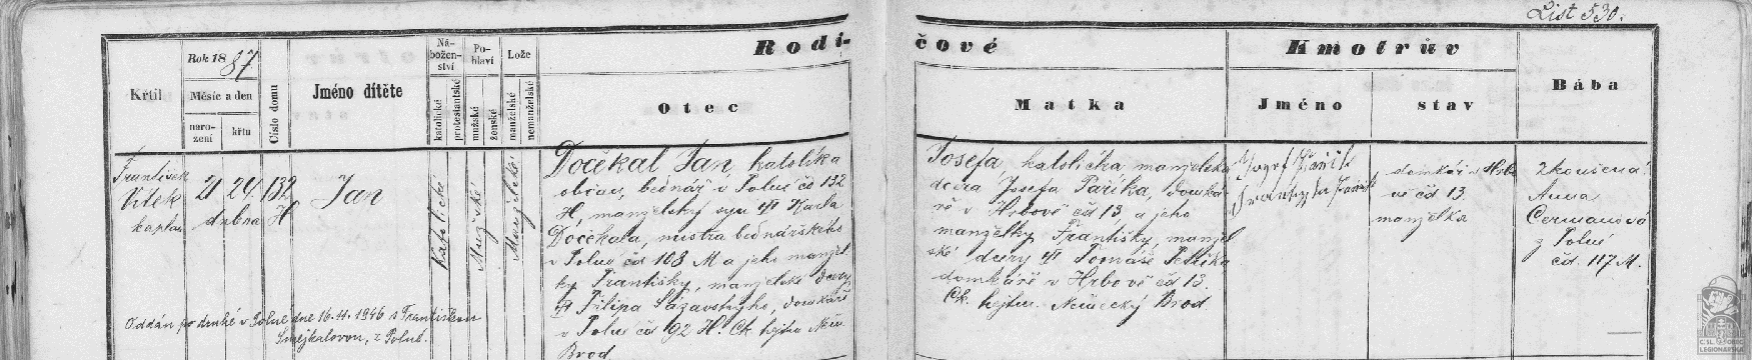 List 530.
Křtil
Rok 1887
Měsíc a den
narození
křtu
Číslo domu
Jméno dítěte
Náboženství
katolické
protestantské
Pohlaví
mužské
ženské
Lože
manželské
nemanželské
Rodičové
Otec
Matka
Kmotrův
Jméno
stav
Bába
František
Vítek
kaplan
21 24
dubna
132
H
Jan
Katolické
Mužské
Manželské
Dočekal Jan, katolíka
občan, bednář v Polné čd 132
H, manželský syn Karla
Dočekala, mistra bednářského
v Polné čd 108 M a jeho manžel-
ky Františky, manželské dcery
Filipa Sázavského, domkáře
v Polné čd 192 H. Ck. hejtm. Něm.
Brod
Josefa, katolička, manželská
dcera Josefa Paříka, domká-
ře v Hrbově čd 13, a jeho
manželky Františky, manžel-
ské dcery Tomáše
domkáře v Hrbově čd 13.
Ck. hejtm. Německý Brod
Josef Pařík
Františka
domkář v Hrbo-
vě čd 13.
manželka
zkoušená
Anna
Čermáková
z Polné
čd. 117 M.
Oddán po druhé v Polné dne 16.II.1946 s Františkou
Smejkalovou, z Polné.
ČS. OBEC
LEGIONÁŘSKÁ